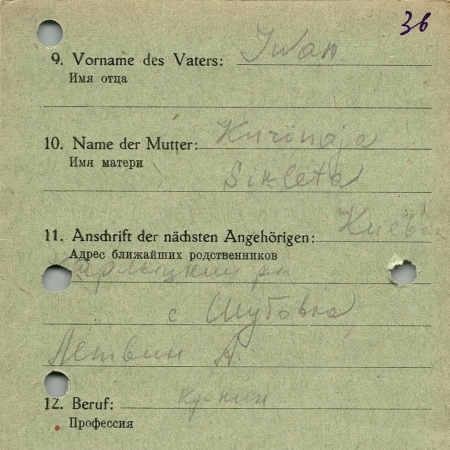 36
9. Vorname des Vaters: Iwan.
Имя отца
10. Name der Mutter: Kurinaja
Имя матери
Sikleta
11. Anschrift der nächsten Angehörigen:
Адрес ближайших родственников
с Шубовка
Летвин А.
12. Beruf:
Профессия